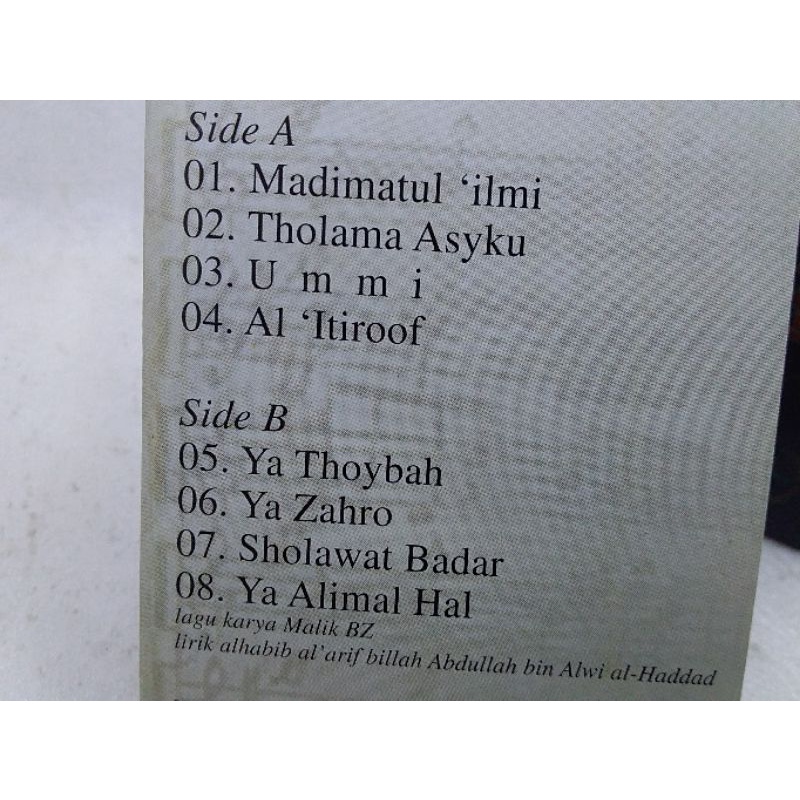 Side A
01. Madimatul ‘ilmi
02. Tholama Asyku
03. U m m i
04. Al ‘Itiroof
Side B
05. Ya Thoybah
06. Ya Zahro
07. Sholawat Badar
08. Ya Alimal Hal
lagu karya Malik BZ
lirik alhabib al’arif billah Abdullah bin Alwi al-Haddad